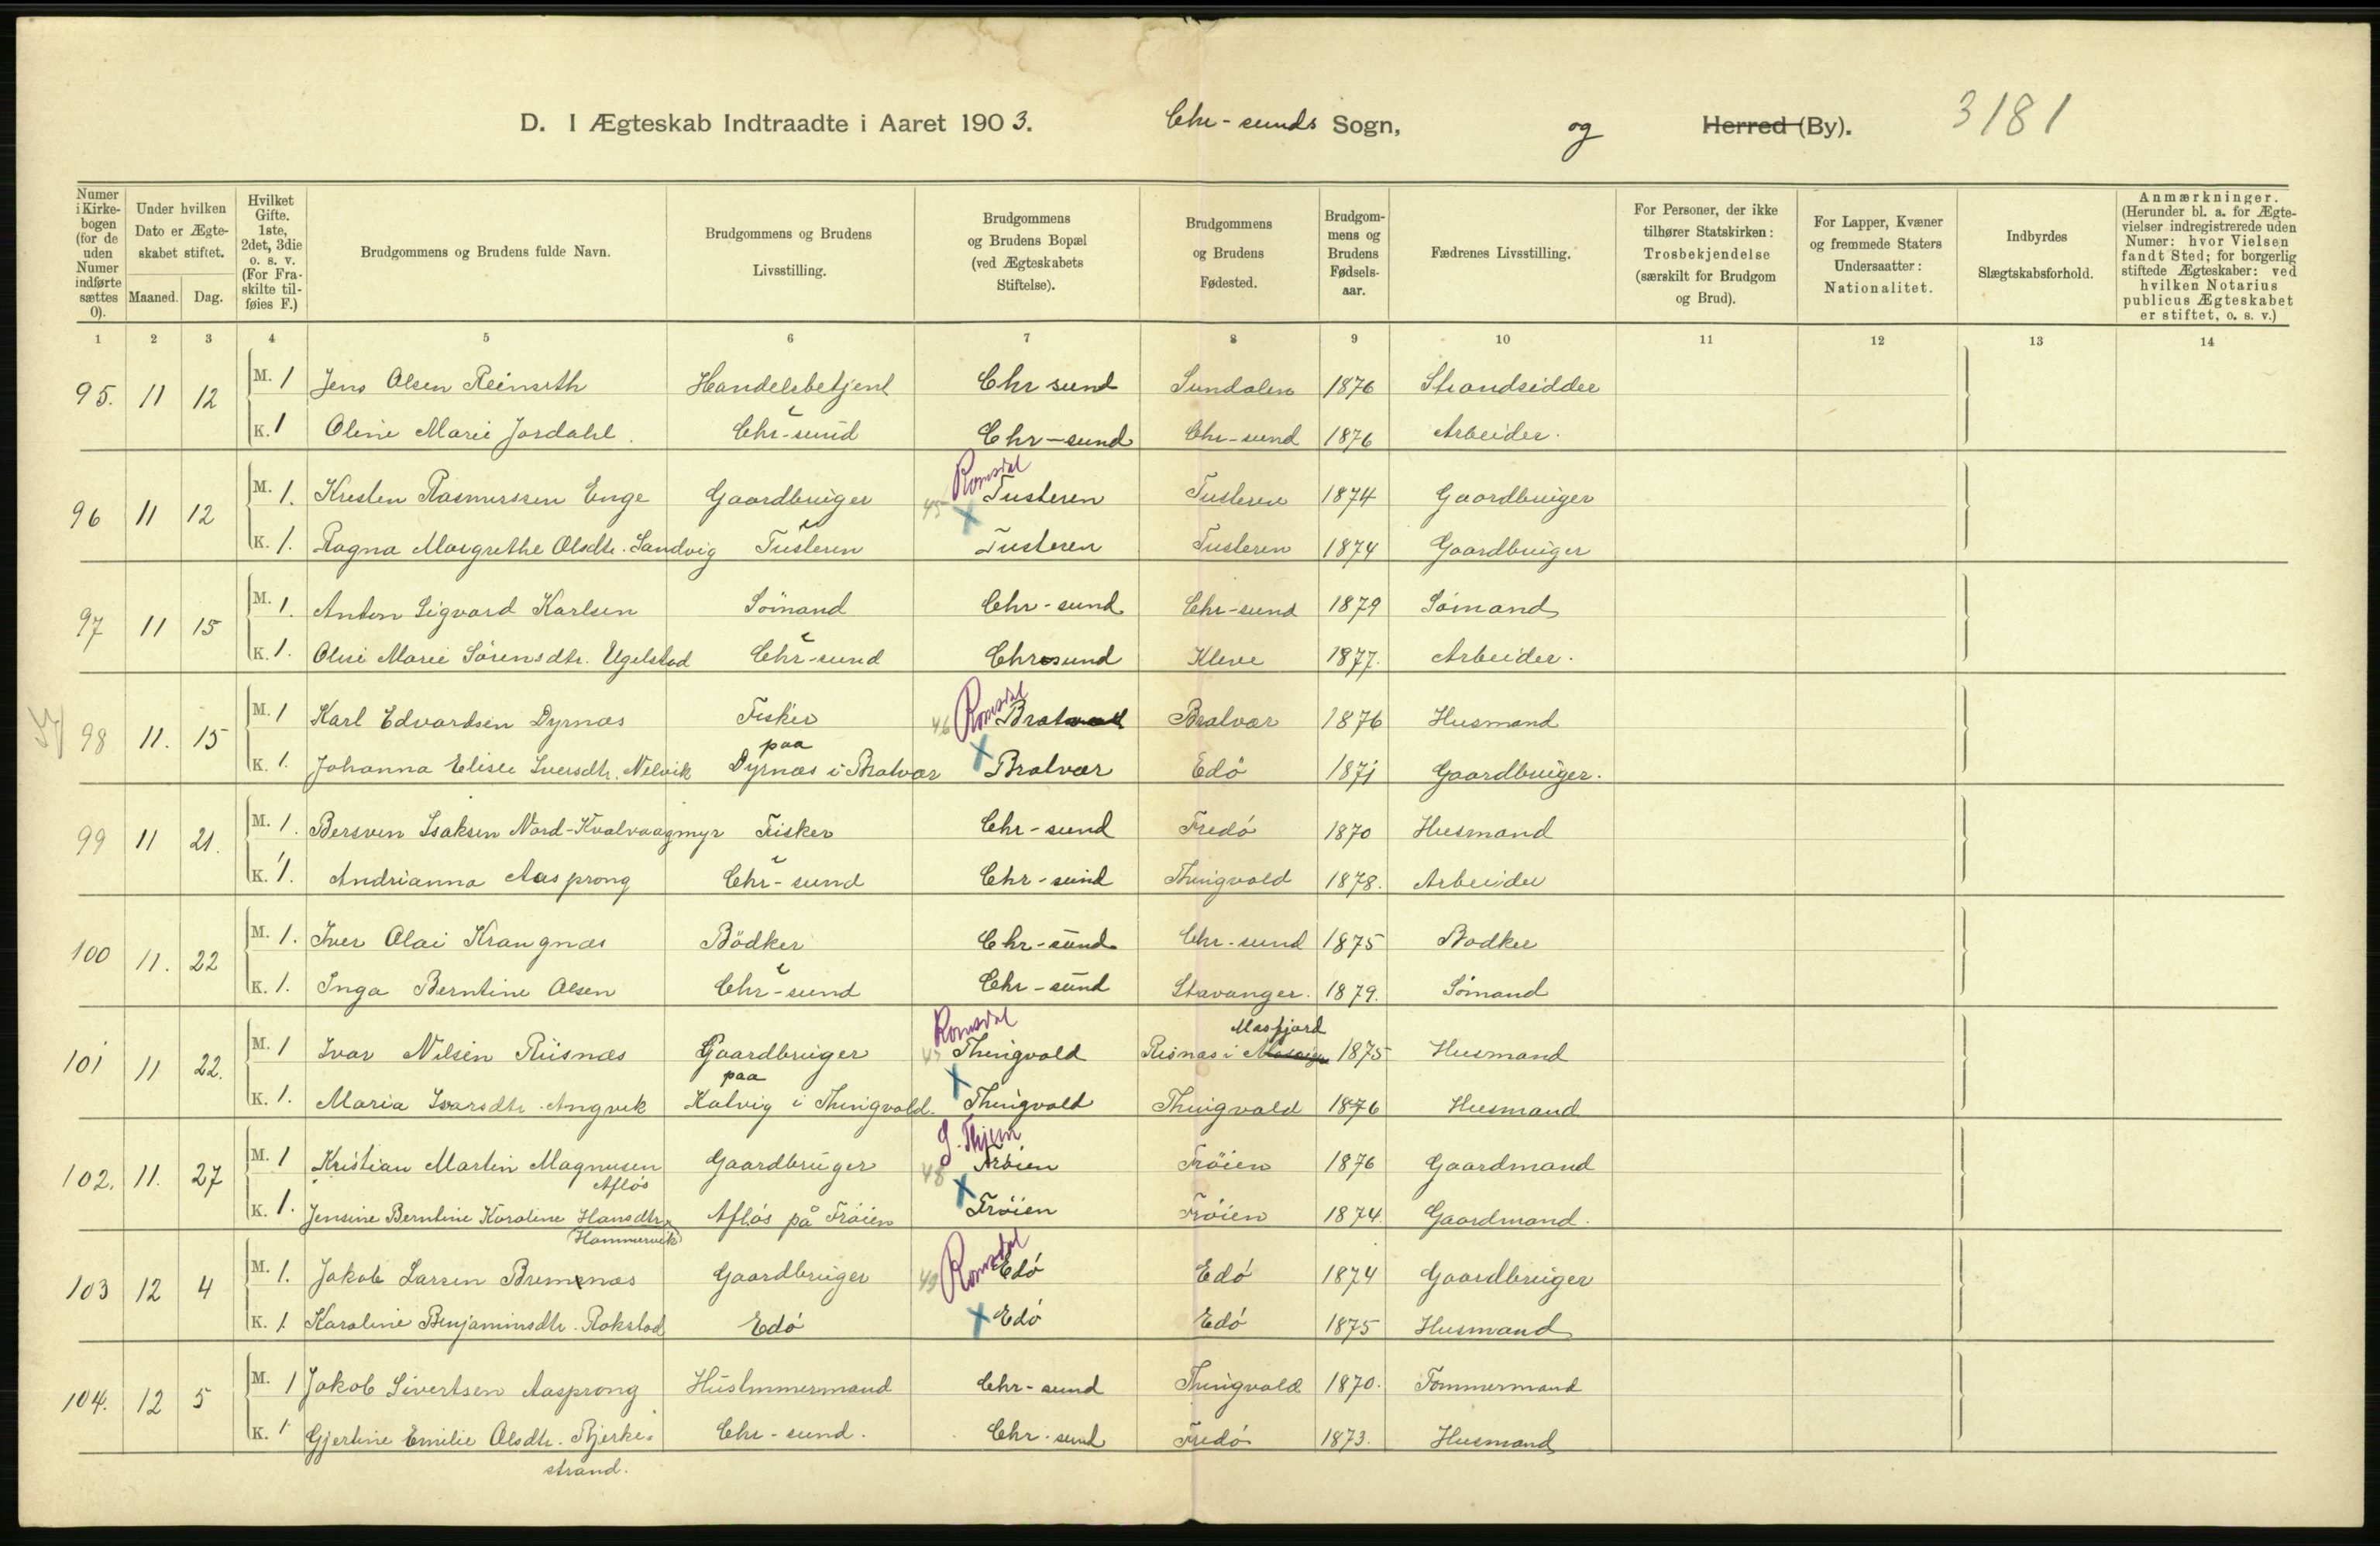 D. I Ægteskab Indtraadte i Aaret 1903. Chr-sunds Sogn, og Herred (By). 3181
Numer i Kirkebogen (for de uden Numer indførte sættes 0).
Under hvilken Dato er Ægteskabet stiftet.
Maaned. Dag.
Hvilket Gifte. 1ste, 2det, 3die o. s. v. (For Fraskilte tilføies F.)
Brudgommens og Brudens fulde Navn.
Brudgommens og Brudens Livsstilling.
Brudgommens og Brudens Bopæl (ved Ægteskabets Stiftelse).
Brudgommens og Brudens Fødested.
Brudgommens og Brudens Fødselsaar.
Fædrenes Livsstilling.
For Personer, der ikke tilhører Statskirken: Trosbekjendelse (særskilt for Brudgom og Brud).
For Lapper, Kvæner og fremmede Staters Undersaatter: Nationalitet.
Indbyrdes Slægtskabsforhold.
Anmærkninger. (Herunder bl. a. for Ægtevielser indregistrerede uden Numer: hvor Vielsen fandt Sted; for borgerlig stiftede Ægteskaber: ved hvilken Notarius publicus Ægteskabet er stiftet, o. s. v.)
1 2 3 4 5 6 7 8 9 10 11 12 13 14
95. 11 12 M. 1 Jens Olsen Reinseth Handelsbetjent Chr sund Sundalen 1876 Strandsidder
K. 1 Oline Marie Jordahl. Chr-sund Chr-sund Chr-sund 1876 Arbeider.
Romsdal
96 11 12 M. 1. Kresten Rasmussen Enge Gaardbruger 45 Tusteren Tusteren 1874 Gaardbruger
K. 1. Ragna Margrethe Olsdtr. Sandvig Tusteren Tusteren Tusteren 1874 Gaardbruger
97 11 15 M. 1. Anton Sigvard Karlsen Sömand Chr-sund Chr-sund 1879 Sömand
K. 1. Olise Marie Sörensdtr. Ugelstad Chr-sund Chrsund Kleve 1877. Arbeider.
Romsdal
98 11. 15 M. 1 Karl Edvardsen Dyrnæs Fisker 46 Bratvær Bratvær 1876 Husmand
paa
K. 1. Johanna Elise Iversdtr. Nelvik Dyrnæs i Bratvær Bratvær Edö 1871 Gaardbruger.
99 11 21. M. 1. Bersven Isaksen Nord-Kvalvaagmyr Fisker Chr-sund Fredö 1870 Husmand
K. 1. Andrianna Aasprong Chr-sund Chr-sund Thingvold 1878. Arbeider
100 11. 22 M. 1. Iver Olai Krangnæs Bödker Chr-sund Chr-sund 1875 Bödker
K. 1. Inga Berntine Olsen Chr-sund Chr-sund Stavanger. 1879. Sömand
Romsdal Masfjord
101 11 22. M. 1 Ivar Nilsen Riisnæs Gaardbruger 47 Thingvold Risnæs i 1875 Husmand
paa
K. 1. Maria Ivarsdtr. Angvik Kalvig i Thingvold. Thingvold Thingvold 1876 Husmand
S. Thjem
102. 11. 27 M. 1 Kristian Martin Magnusen Gaardbruger 48 Fröien Fröien 1876 Gaardmand
Aflös
K. 1. Jensine Berntine Karoline Hansdtr. Aflös på Fröien Fröien Fröien 1874. Gaardmand.
Hammervik
Romsdal
103 12 4 M. 1. Jakob Larsen Bremnæs Gaardbruger 49 Edö Edö 1874 Gaardbruger
K. 1. Karoline Benjaminsdtr. Rokstad Edö Edö Edö 1875 Husmand
104. 12 5 M. 1 Jakob Sivertsen Aasprong Hüstmmermand Chr-sund Thingvold 1870. Tömmermand
K. 1 Gjertine Emilie Olsdtr. Bjerke- Chr-sund. Chr.sund Fredö 1873. Husmand
strand.